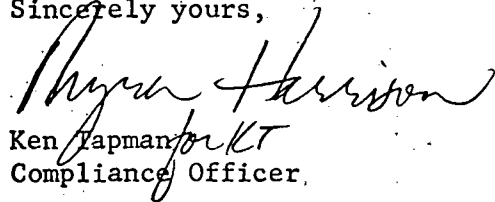 Sincerely yours,
Myra Harrison
Ken Tapman for KT
Compliance Officer